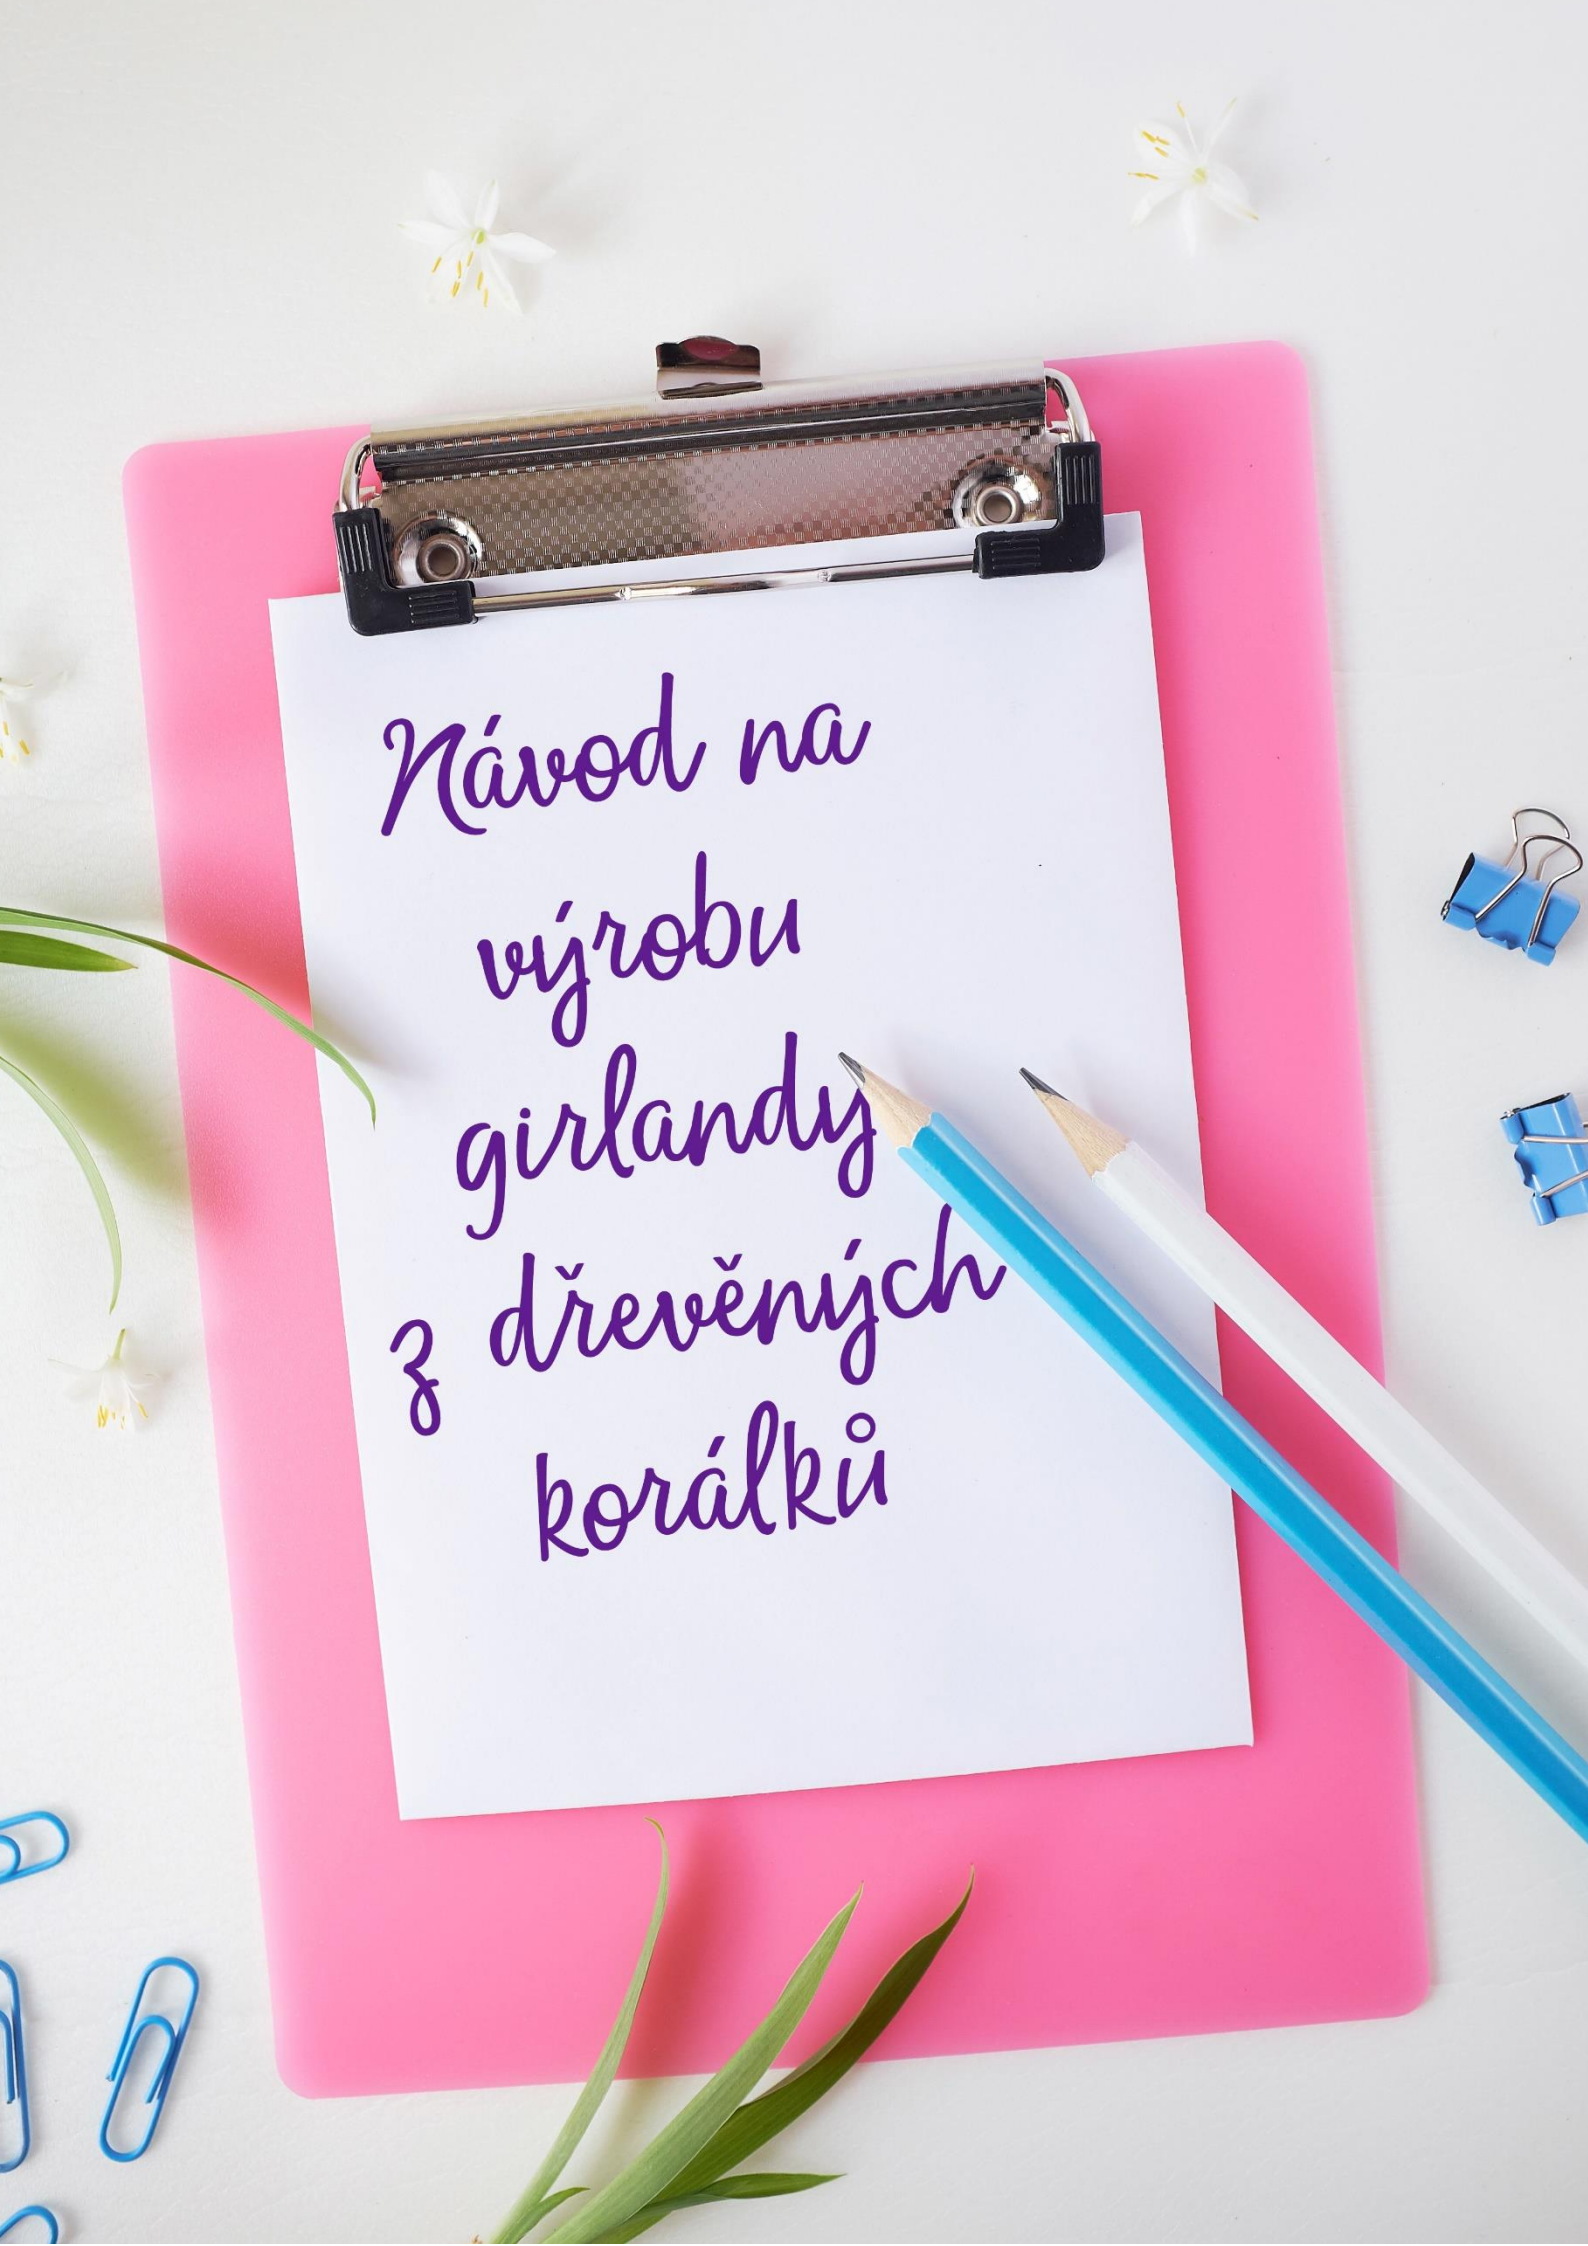 Návod na
výrobu
girlandy
z dřevěných
korálků